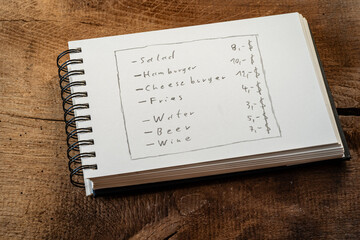 - Salad 8,-$
- Hamburger 10,-$
- Cheeseburger 11,-$
- Fries 4,-$
- Water 3,-$
- Beer 5,-$
- Wine 7,-$